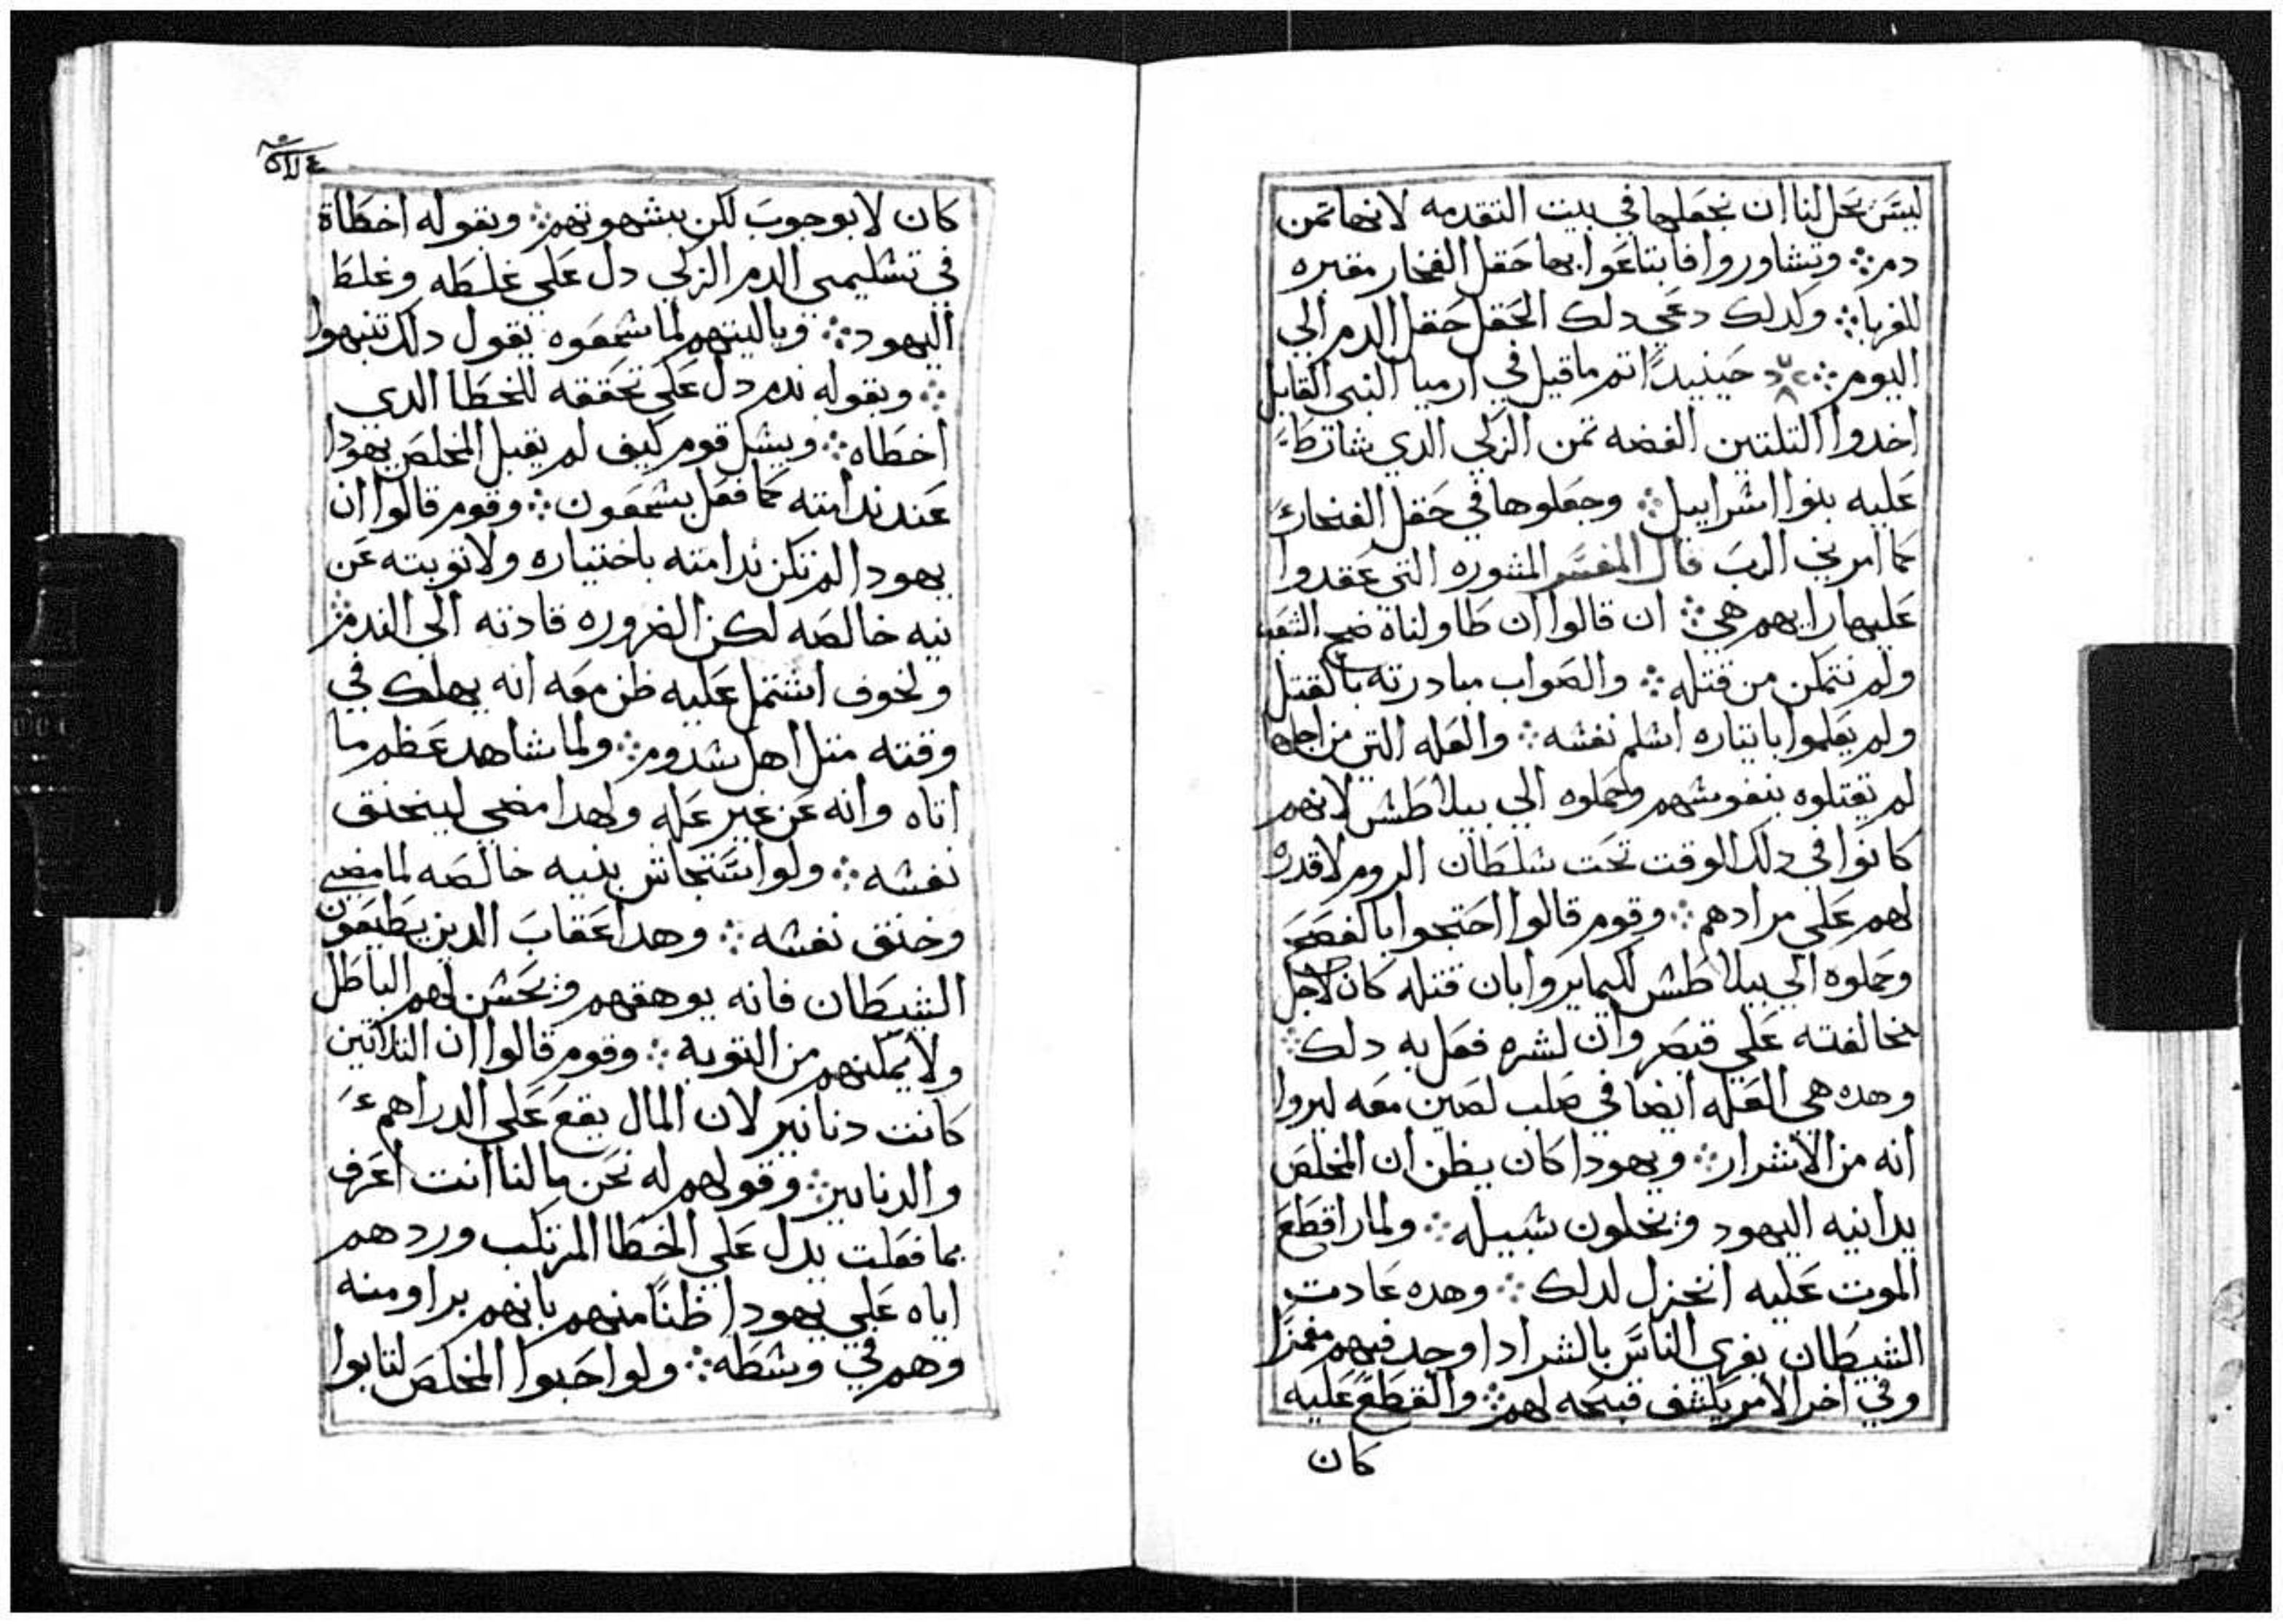 ليس يحل لنا ان نجعلها في بيت التقدمه لانها تمن
دم ⁘ وتشاوروا فابتاعوا بها حقل الفخار مقبره
للغربا ⁘ ولدلك دعي دلك الحقل حقل الدم الي
اليوم ⁘ حينيدًا تم ما قيل في ارميا النبي القايل
اخدوا التلتين الفضه تمن الزكي الدي شارط
عليه بنوا اسراييل ⁘ وجعلوها في حقل الفخار
كما امرني الرب قال المفسر المشوره التي عقدوا
عليها رايهم هي ⁘ ان قالوا ان طاولناه ضج الشعب
ولم نتمكن من قتله ⁘ والصواب مبادرته بالقتل
ولم يعلموا بايتاره اسلم نفسه ⁘ والعله التي من اجلها
لم يقتلوه بنفوسهم وحملوه الي بيلاطس لانهم
كانوا في دلك الوقت تحت سلطان الروم لا قدره
لهم علي مرادهم ⁘ وقوم قالوا احتجوا بالفصح
وحملوه الي بيلاطس لكيما يروا بان قتله كان لاجل
مخالفته علي قيصر وان لشره فعل به دلك ⁘
وهده هي العله ايضا في صلب لصين معه ليروا
انه من الاشرار ⁘ ويهودا كان يظن ان المخلص
يدانيه اليهود ويخلون سبيله ⁘ ولما راقطع
الموت عليه انخزل لدلك ⁘ وهده عادت
الشيطان يغري الناس بالشر ادا وجد فيهم مغمزًا
وفي اخر الامر يكشف قبحه لهم ⁘ والقطع عليه
كان
كان لا بوجوب لكن بشهوتهم ⁘ وبقوله اخطاة
في تسليمي الدم الزكي دل علي غلطه وغلط
اليهود ⁘ وياليتهم لما سمعوه يقول دلك تنبهوا
⁘ وبقوله ندم دل علي تحققه للخطا الدي
اخطاه ⁘ ويسل قوم كيف لم يقبل المخلص يهودا
عند ندامته كما فعل بسمعون ⁘ وقوم قالوا ان
يهودا لم تكن ندامته باختياره ولا توبته عن
نيه خالصه لكن الضروره قادته الي الندم ⁘
ولخوف اشتمل عليه ظن معه انه يهلك في
وقته متل اهل سدوم ⁘ ولما شاهد عظم ما
اتاه وانه عن غير عله ولهدا مضي ليخنق
نفسه ⁘ ولو استجاش بنيه خالصه لما مضي
وخنق نفسه ⁘ وهدا عقاب الدين يطيعون
الشيطان فانه يوهقهم ويحسن لهم الباطل
ولا يمكنهم من التوبه ⁘ وقوم قالوا ان التلاتين
كانت دنانير لان المال يقع علي الدراهم
والدنانير ⁘ وقولهم له نحن مالنا انت اعرف
بما فعلت يدل علي الخطا المرتكب وردهم
اياه علي يهودا ظنًا منهم بانهم براو منه
وهم في وسطه ⁘ ولو احبوا المخلص لتابوا